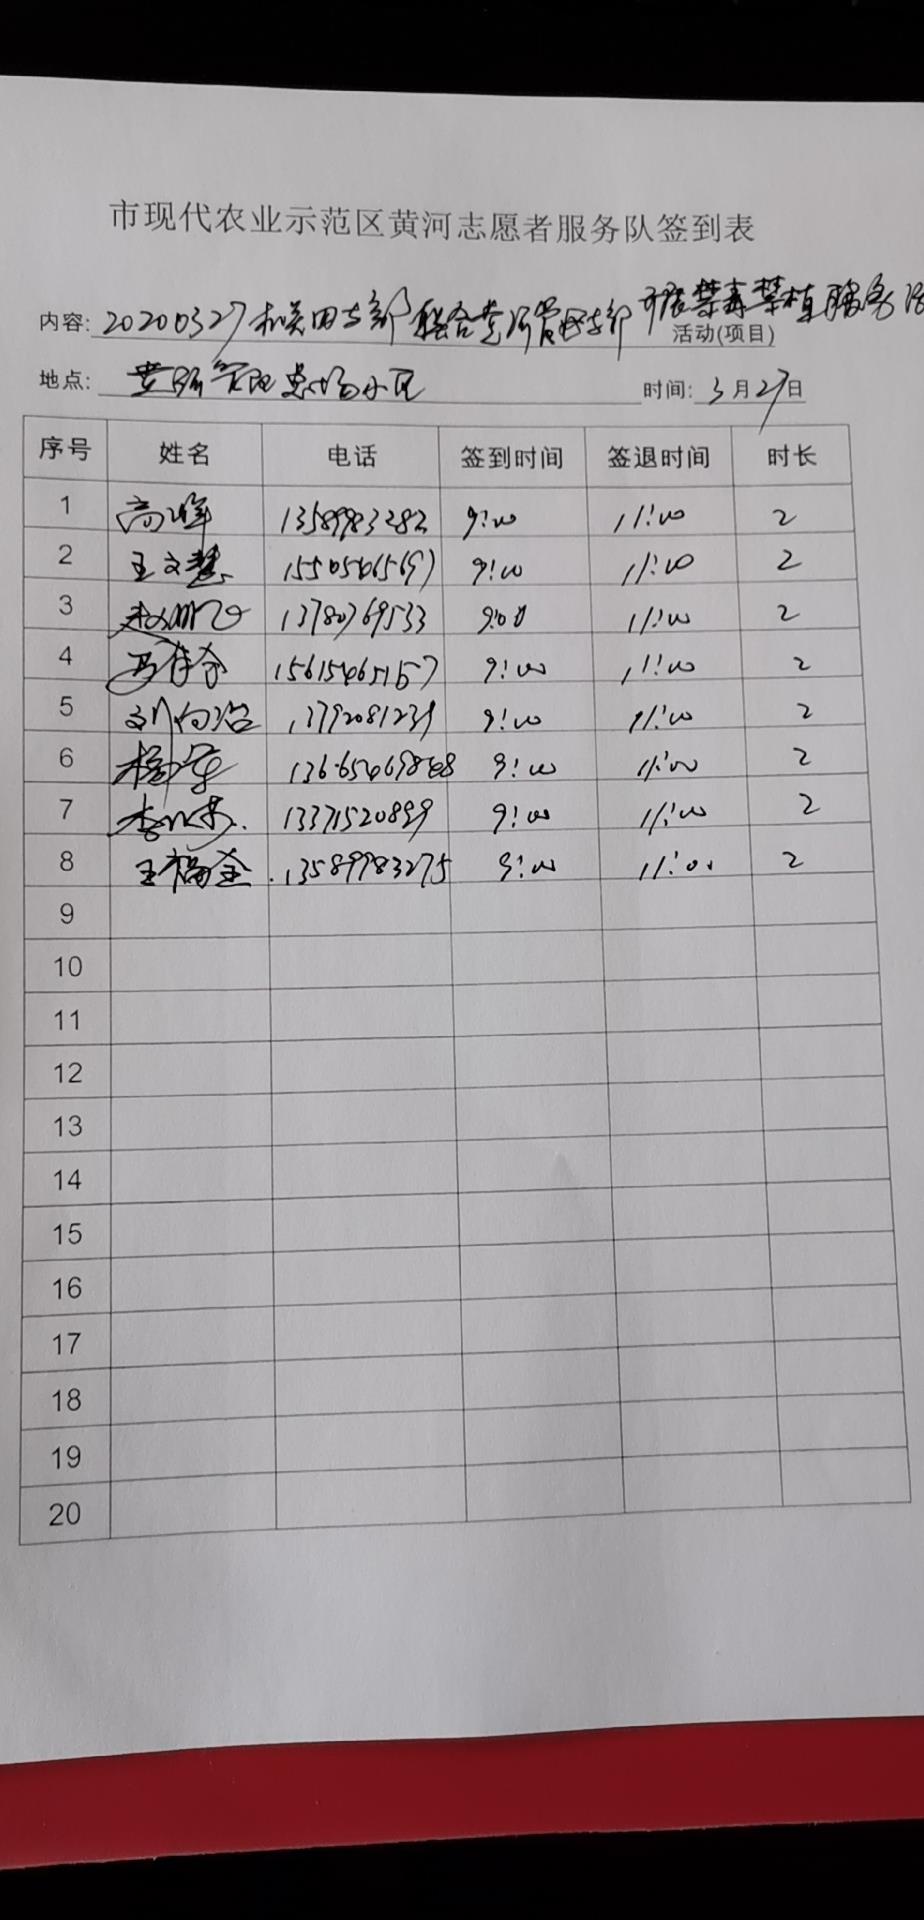 市现代农业示范区黄河志愿者服务队签到表
内容: 20200327 机关四支部联合黄河管区支部开展禁毒禁植服务活动(项目)
地点: 黄河 小区 时间: 3月27日
序号 姓名 电话 签到时间 签退时间 时长
1 高峰 13589983282 9:00 11:00 2
2 王文慧 9:00 11:00 2
3 13780769533 9:00 11:00 2
4 15615465157 9:00 11:00 2
5 刘向治 13792081239 9:00 11:00 2
6 9:00 11:00 2
7 13371520899 9:00 11:00 2
8 王福全 13589983275 9:00 11:00 2
9
10
11
12
13
14
15
16
17
18
19
20